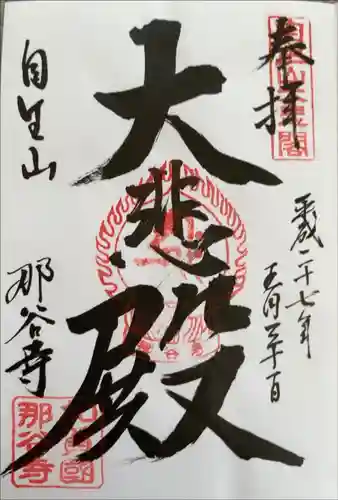 奉拝
平成二十七年
五月三十日
大悲殿
自生山
那谷寺
加賀國
那谷寺